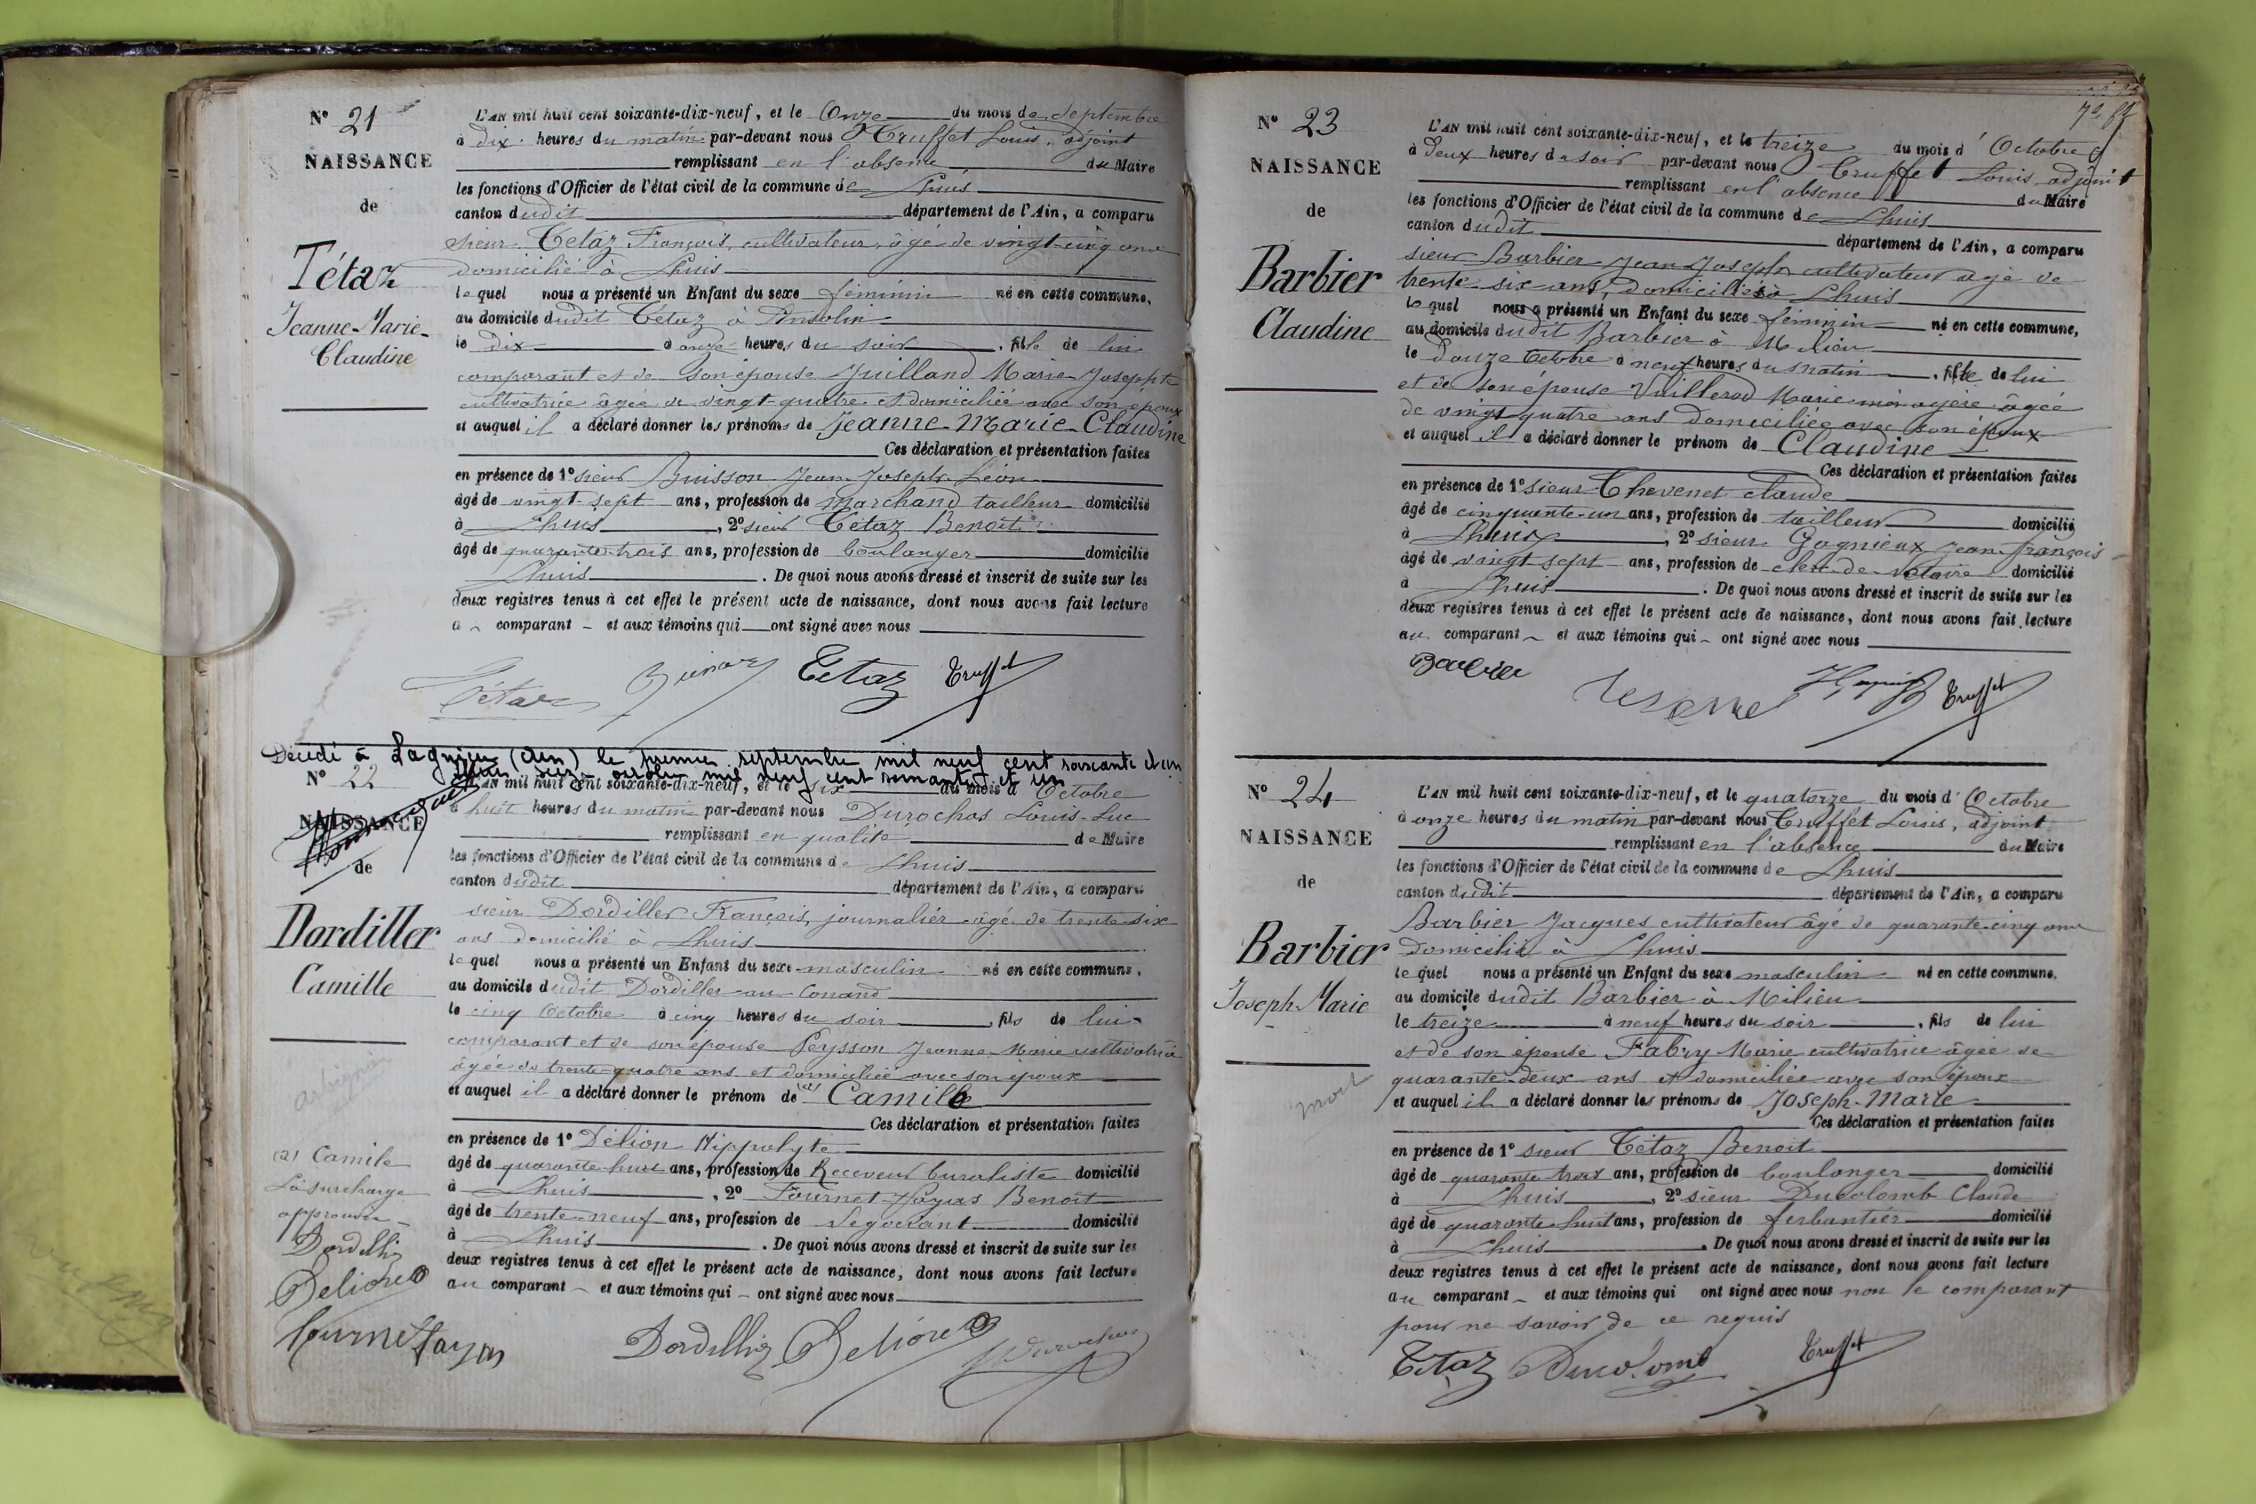 N° 21
NAISSANCE
de
Tétaz
Jeanne-Marie-
Claudine
L'AN mil huit cent soixante-dix-neuf, et le Onze du mois de Septembre
à dix heures du matin par-devant nous Truffet Louis, adjoint
remplissant en l'absence du Maire
les fonctions d'Officier de l'état civil de la commune de Lhuis
canton dudit département de l'Ain, a comparu
sieur Tétaz François, cultivateur, âgé de vingt-cinq ans
domicilié à Lhuis
lequel nous a présenté un Enfant du sexe féminin né en cette commune,
au domicile dudit Tétaz à Ansolin
le dix à onze heures du soir, fille de lui
comparant et de son épouse Juilland Marie Josephte
cultivatrice âgée de vingt-quatre et domiciliée avec son époux
et auquel il a déclaré donner les prénoms de Jeanne-Marie-Claudine
Ces déclaration et présentation faites
en présence de 1° sieur Buisson Jean-Joseph-Léon
âgé de vingt-sept ans, profession de Marchand tailleur domicilié
à Lhuis, 2° sieur Tétaz Benoît
âgé de quarante-trois ans, profession de boulanger domicilié
Lhuis. De quoi nous avons dressé et inscrit de suite sur les
deux registres tenus à cet effet le présent acte de naissance, dont nous avons fait lecture
a comparant et aux témoins qui ont signé avec nous
Tétaz Tetaz Truffet
Décédé à Lagnieu (Ain) le premier septembre mil neuf cent soixante et un
mil neuf cent soixante et un
N° 22
NAISSANCE
de
Dordiller
Camille
L'AN mil huit cent soixante-dix-neuf, et le six du mois d'Octobre
à huit heures du matin par-devant nous Durochas Louis-Luc
remplissant en qualité de Maire
les fonctions d'Officier de l'état civil de la commune de Lhuis
canton dudit département de l'Ain, a comparu
sieur Dordiller François, journalier âgé de trente-six
ans domicilié à Lhuis
lequel nous a présenté un Enfant du sexe masculin né en cette commune,
au domicile dudit Dordiller au Conand
le cinq Octobre à cinq heures du soir, fils de lui
comparant et de son épouse Peysson Jeanne-Marie cultivatrice
âgée de trente-quatre ans et domiciliée avec son époux
et auquel il a déclaré donner le prénom de (a) Camille
Ces déclaration et présentation faites
en présence de 1° Délion Hippolyte
âgé de quarante-huit ans, profession de Receveur buraliste domicilié
à Lhuis, 2° Fournet-Fayas Benoît
âgé de trente-neuf ans, profession de Négociant domicilié
à Lhuis. De quoi nous avons dressé et inscrit de suite sur les
deux registres tenus à cet effet le présent acte de naissance, dont nous avons fait lecture
au comparant et aux témoins qui ont signé avec nous
(a) Camile
La surcharge
approuvée
Dordiller
Delion
Dordiller Delion
N° 23
NAISSANCE
de
Barbier
Claudine
L'AN mil huit cent soixante-dix-neuf, et le treize du mois d'Octobre
à deux heures du soir par-devant nous Truffet Louis adjoint
remplissant en l'absence du Maire
les fonctions d'Officier de l'état civil de la commune de Lhuis
canton dudit département de l'Ain, a comparu
sieur Barbier Jean Joseph cultivateur âgé de
trente-six ans, domicilié à Lhuis
lequel nous a présenté un Enfant du sexe féminin né en cette commune,
au domicile dudit Barbier à Milieu
le douze Octobre à neuf heures du matin, fille de lui
et de son épouse Vuillerod Marie ménagère âgée
de vingt quatre ans domiciliée avec son époux
et auquel il a déclaré donner le prénom de Claudine
Ces déclaration et présentation faites
en présence de 1° sieur Thevenet Claude
âgé de cinquante-un ans, profession de tailleur domicilié
à Lhuis, 2° sieur Gagnieux Jean-François
âgé de vingt sept ans, profession de clerc de Notaire domicilié
à Lhuis. De quoi nous avons dressé et inscrit de suite sur les
deux registres tenus à cet effet le présent acte de naissance, dont nous avons fait lecture
au comparant et aux témoins qui ont signé avec nous
Barbier Truffet
N° 24
NAISSANCE
de
Barbier
Joseph-Marie
mort
L'AN mil huit cent soixante-dix-neuf, et le quatorze du mois d'Octobre
à onze heures du matin par-devant nous Truffet Louis, adjoint
remplissant en l'absence du Maire
les fonctions d'Officier de l'état civil de la commune de Lhuis
canton dudit département de l'Ain, a comparu
Barbier Jacques cultivateur âgé de quarante-cinq ans
domicilié à Lhuis
lequel nous a présenté un Enfant du sexe masculin né en cette commune,
au domicile dudit Barbier à Milieu
le treize à neuf heures du soir, fils de lui
et de son épouse Fabry Marie cultivatrice âgée de
quarante-deux ans et domiciliée avec son époux
et auquel il a déclaré donner les prénoms de Joseph-Marie
Ces déclaration et présentation faites
en présence de 1° sieur Tétaz Benoit
âgé de quarante trois ans, profession de boulanger domicilié
à Lhuis, 2° sieur Ducolomb Claude
âgé de quarante-huit ans, profession de ferblantier domicilié
à Lhuis. De quoi nous avons dressé et inscrit de suite sur les
deux registres tenus à cet effet le présent acte de naissance, dont nous avons fait lecture
au comparant et aux témoins qui ont signé avec nous non le comparant
pour ne savoir de ce requis
Tetaz Ducolomb Truffet